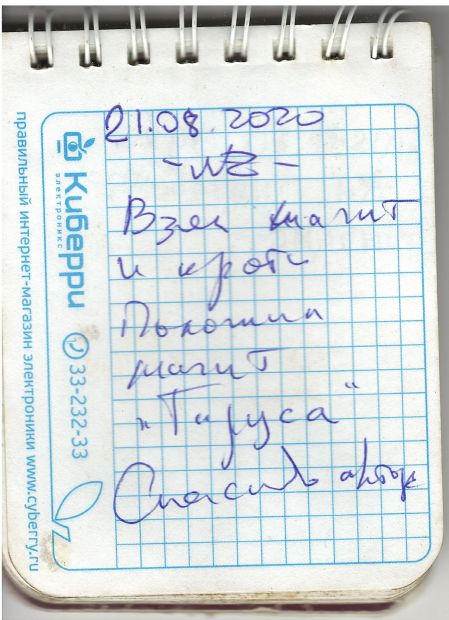 21.08.2020
Взял магнит
и крота
Положил
магнит
"Таруса"
Спасибо автору
Киберри
электроникс
33-232-33
правильный интернет-магазин электроники www.cyberry.ru